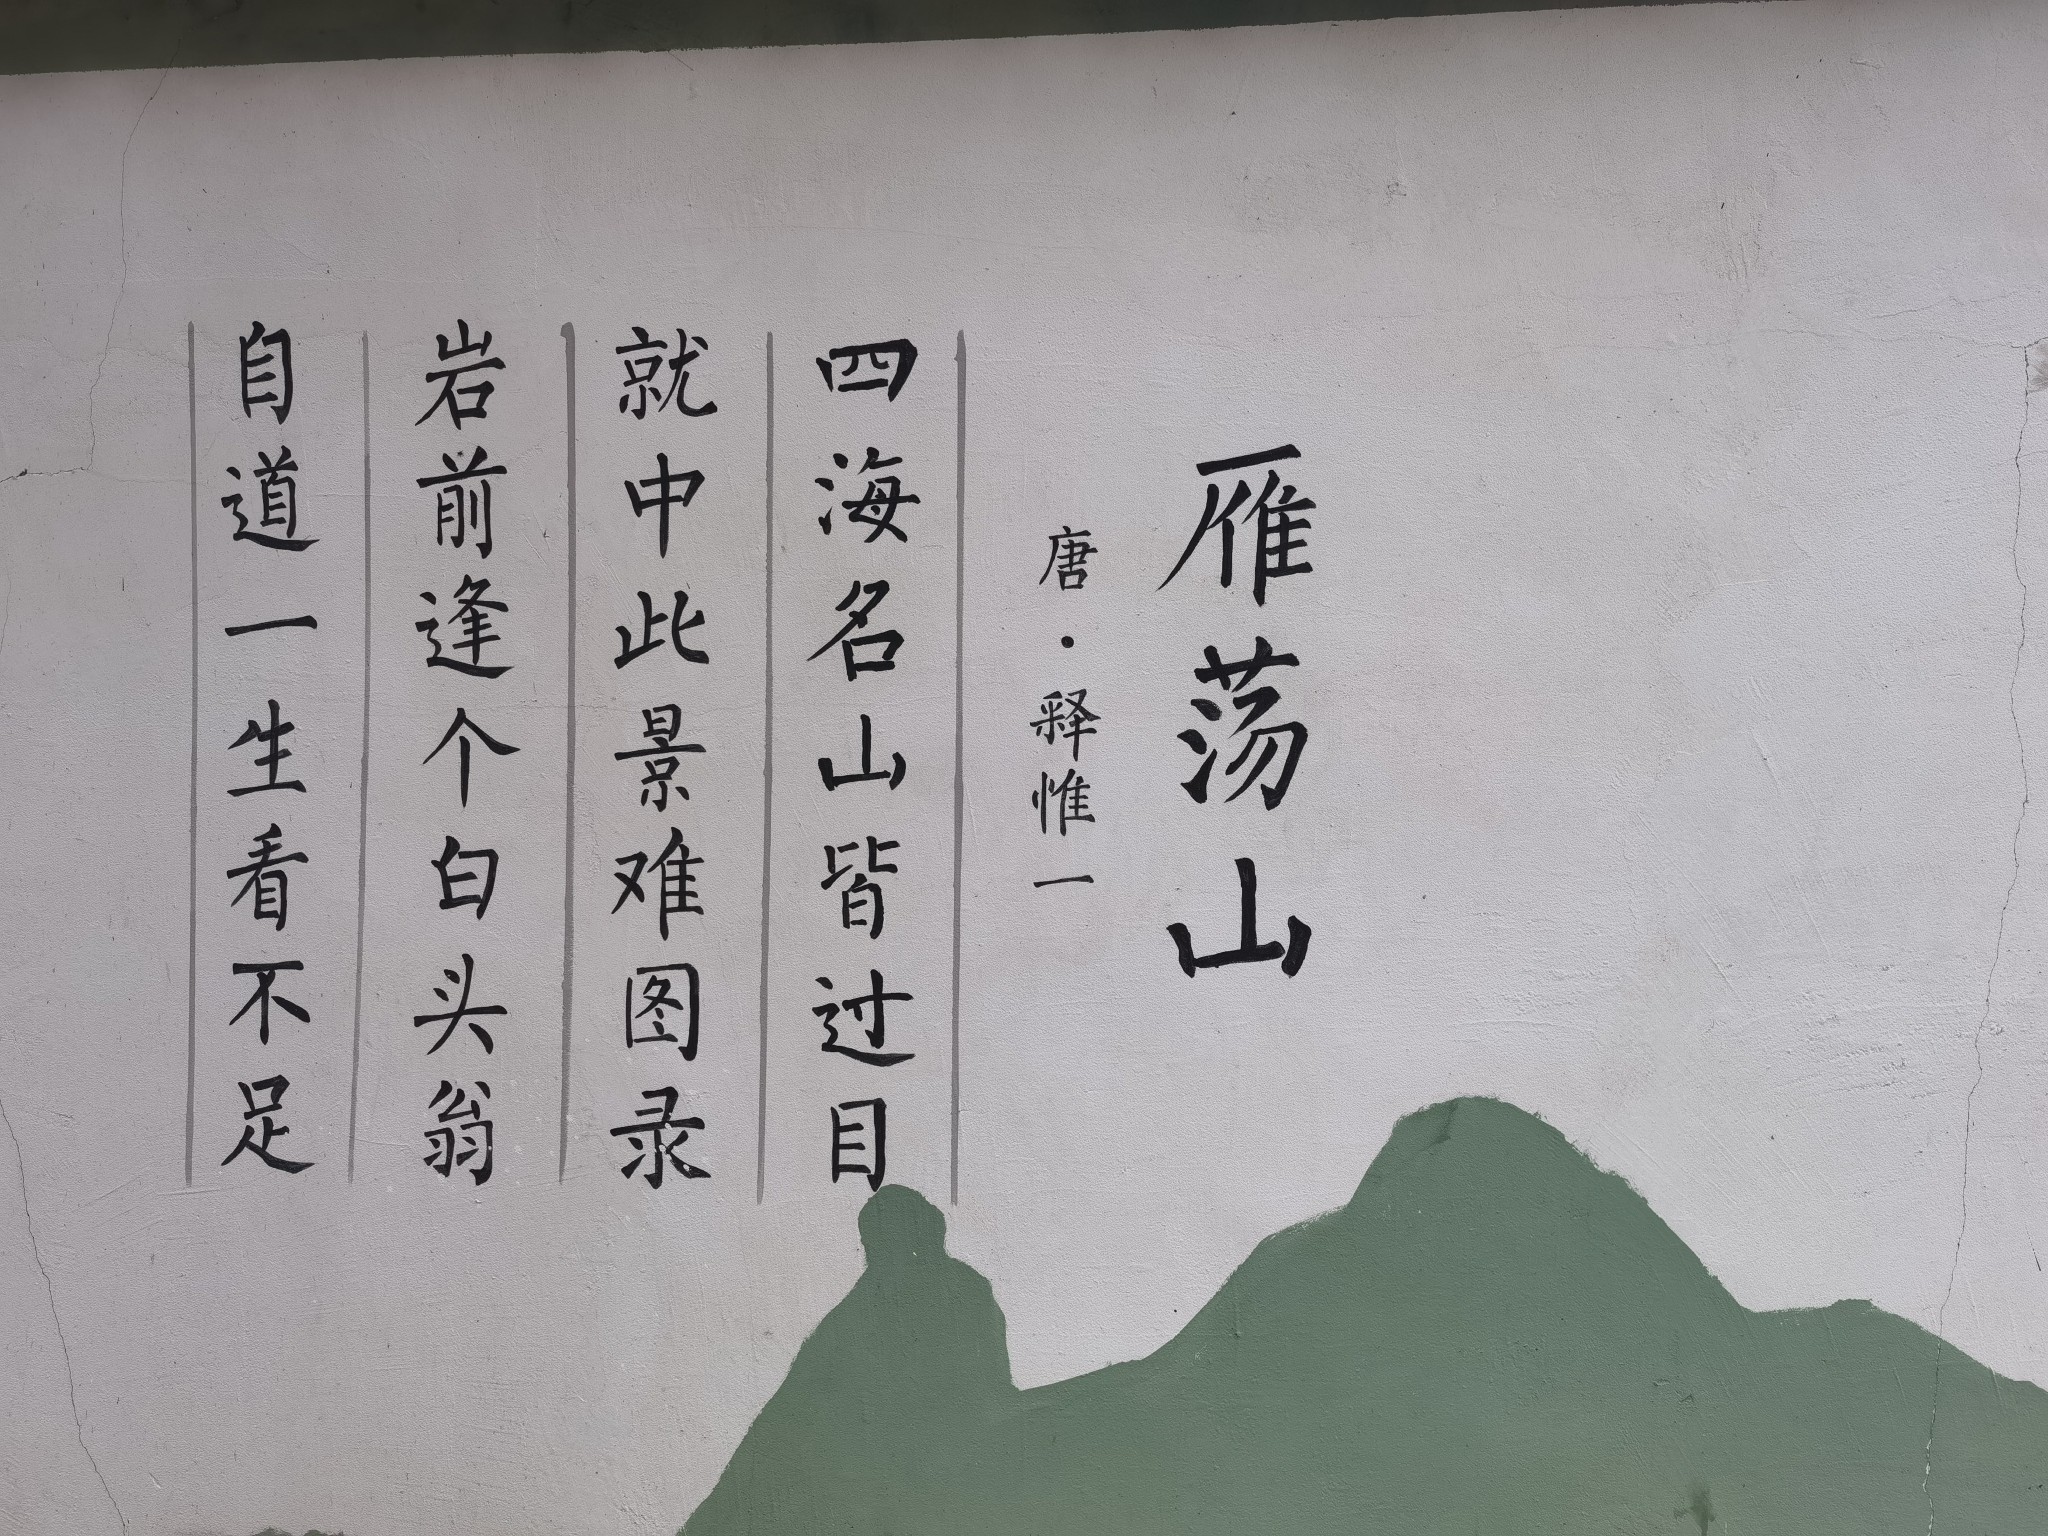 雁荡山
唐·释惟一
四海名山皆过目
就中此景难图录
岩前逢个白头翁
自道一生看不足